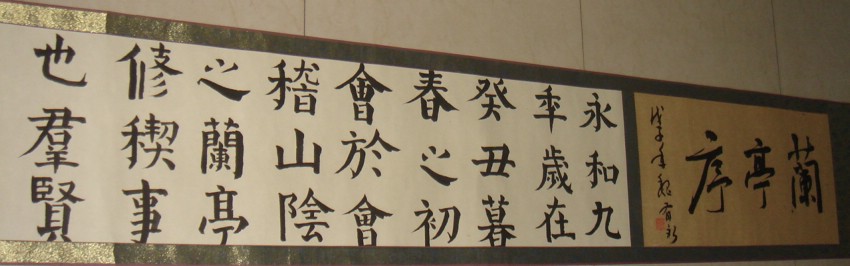 蘭亭序
戊子年
永和九
年歲在
癸丑暮
春之初
會於會
稽山陰
之蘭亭
修稧事
也羣賢